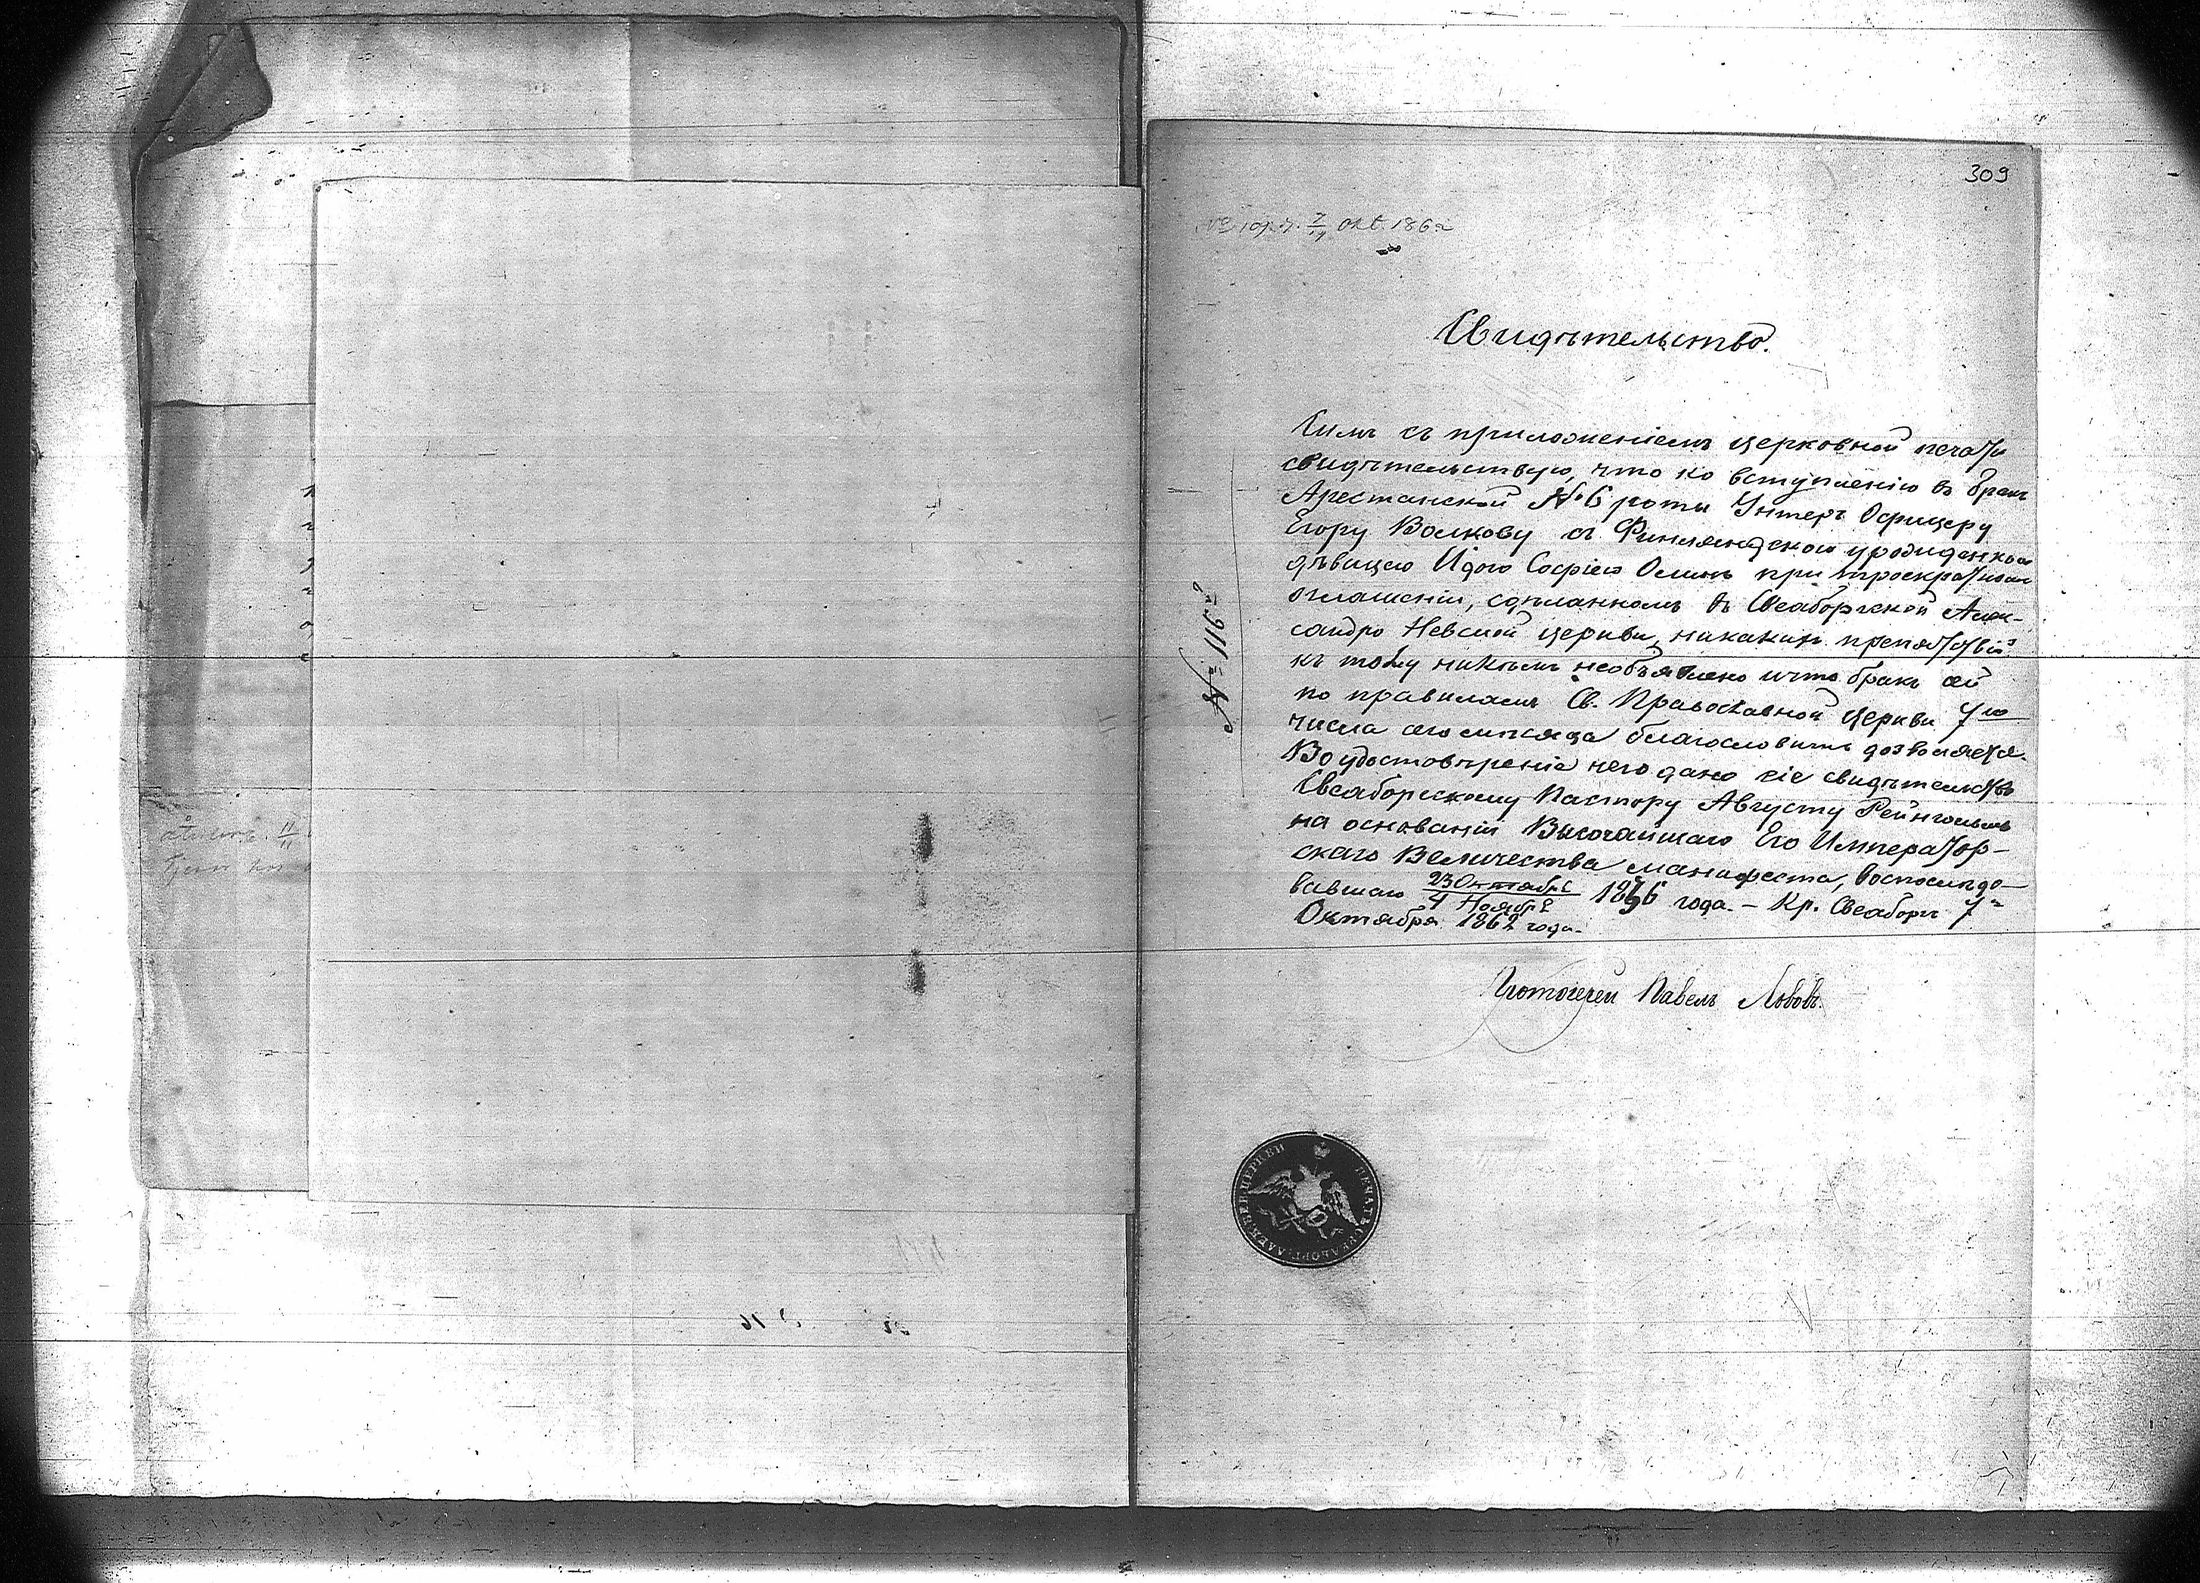 309
Okt. 1862
№ 116.
Свидѣтельство.
Симъ съ приложеніемъ церковной печати
свидѣтельствую, что ко вступленію въ бракъ
Арестанской № 6 роты Унтеръ Офицеру
Егору Волкову съ Финляндскою уроженкою
дѣвицею Идою Софіею Олинъ при троекратномъ
оглашеніи, сдѣланномъ въ Свеаборгской Алек-
сандро Невской церкви, никакихъ препятствій
къ тому никѣмъ необъявлено и что бракъ сей
по правиламъ Св. Православной Церкви 7го
числа сего мѣсяца благословить дозволяется.
Во удостовѣреніе чего дано сіе свидѣтельство
Свеаборгскому Пастору Августу Рейнгольмъ
на основаніи Высочайшаго Его Император-
скаго Величества манифеста, воспослѣдо-
вавшаго 23 Октября / 4 Ноября 18 6 года. – Кр. Свеаборгъ 7
Октября 1862 года.
Протоіерей Павелъ Львовъ.
ПЕЧАТЬ СВЕАБОРГ. АЛЕК. НЕВ. ЦЕРКВИ